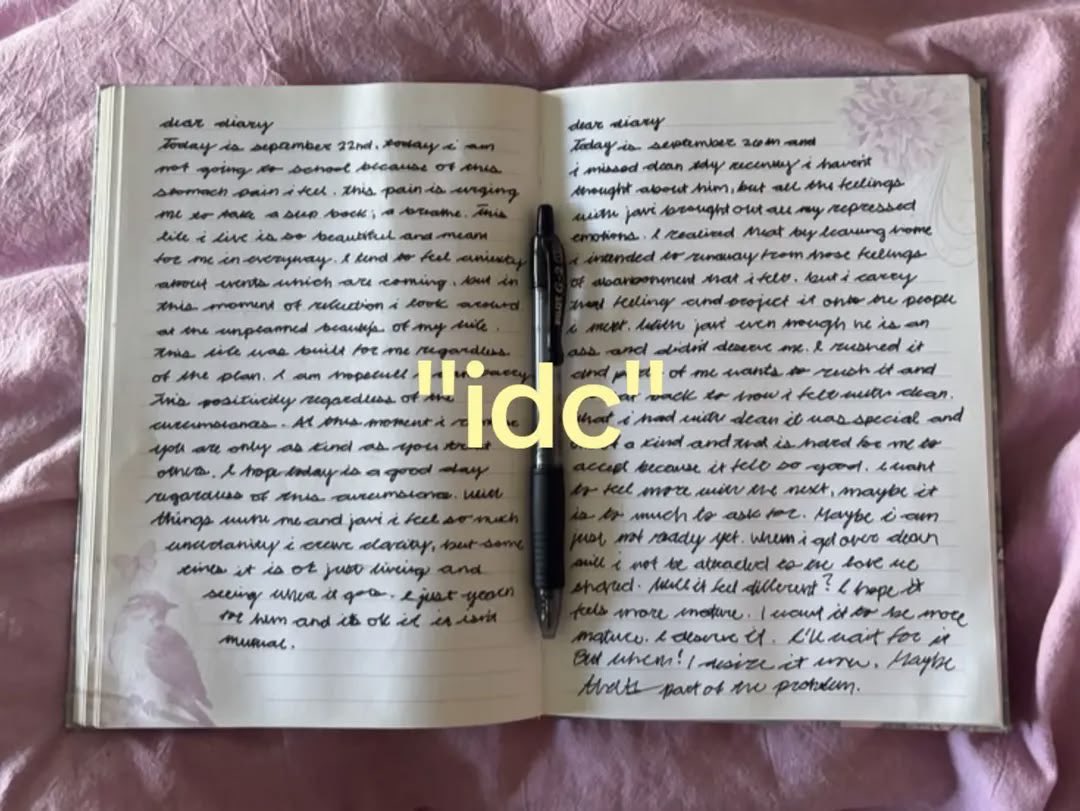 dear diary
Today is september 22nd, today i am
not going to school because of this
stomach pain i feel. this pain is urging
me to take a step back, a breathe. This
life i live is so beautiful and meant
for me in everyway. I tend to feel anxiety
about events which are coming, but in
this moment of reflection i look around
at the unplanned beautys of my life.
this life was built for me regardless
of the plan. I am hopefull i can carry
This positivity regardless of the
circumstances. At this moment i
you are only as kind as you treat
others. I hope today is a good day
regardless of this circumstance. With
things with me and javi i feel so much
uncertainty i crave clarity, but some
times it is ok just living and
seeing where it goes. I just yearn
for him and its ok if it isnt
mutual.
dear diary
Today is september 26th and
i missed dean tdy recently i havent
thought about him, but all the feelings
with javi brought out all my repressed
emotions. I realized that by leaving home
i intended to runaway from those feelings
of abandonment that i felt. but i carry
that feeling and project it onto the people
i meet. With javi even though he is an
ass and didn't deserve me. I rushed it
and part of me wants to rush it and
back to how i felt with dean.
what i had with dean it was special and
of a kind and that is hard for me to
accept because it felt so good. i want
to feel more with the next, maybe it
is to much to ask for. Maybe i am
just not raddy yet. When i get over dean
will i not be attracted to the love we
shared. Will it feel different? I hope it
feels more mature. I want it to be more
mature. I deserve it. I'll wait for it
But when! I desire it now. Maybe
thats part of the problem.
PILOT G-2
"idc"